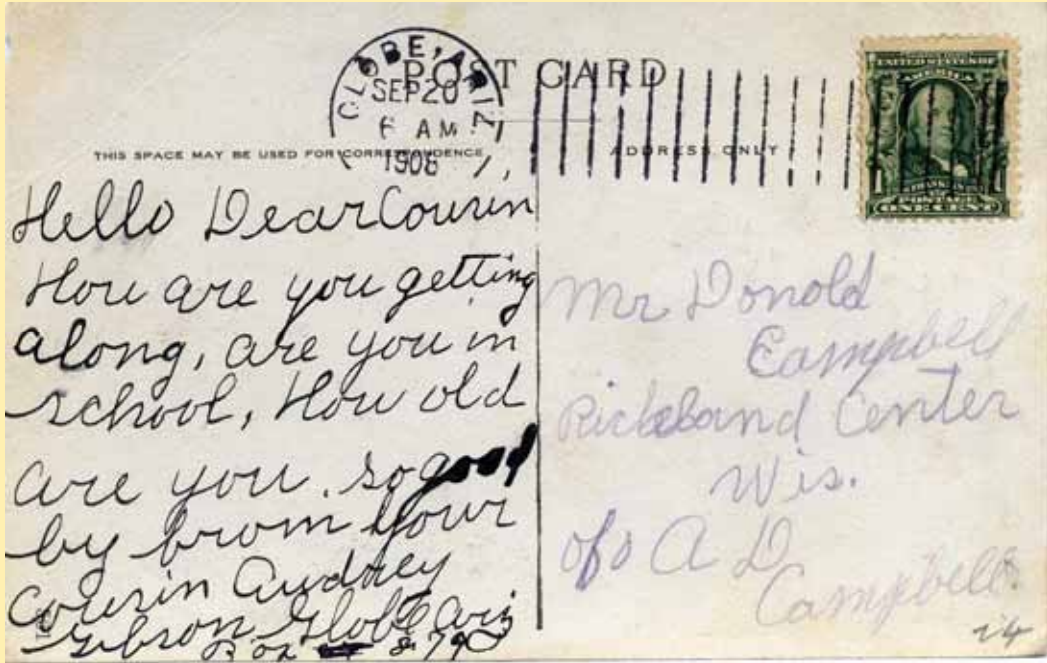 POST CARD
GLOBE, ARIZ
SEP 20
6 AM
1908
THIS SPACE MAY BE USED FOR CORRESPONDENCE
ADDRESS ONLY
UNITED STATES OF
AMERICA
1 FRANKLIN 1
POSTAGE
ONE CENT
Hello Dear Cousin
How are you getting
along, are you in
school, How old
are you. so good
by from your
Cousin Audrey
Gibson Globe Ariz
Box 879
Mr Donold
Campbell
Richland Center
Wis.
c/o A D
Campbell.
24